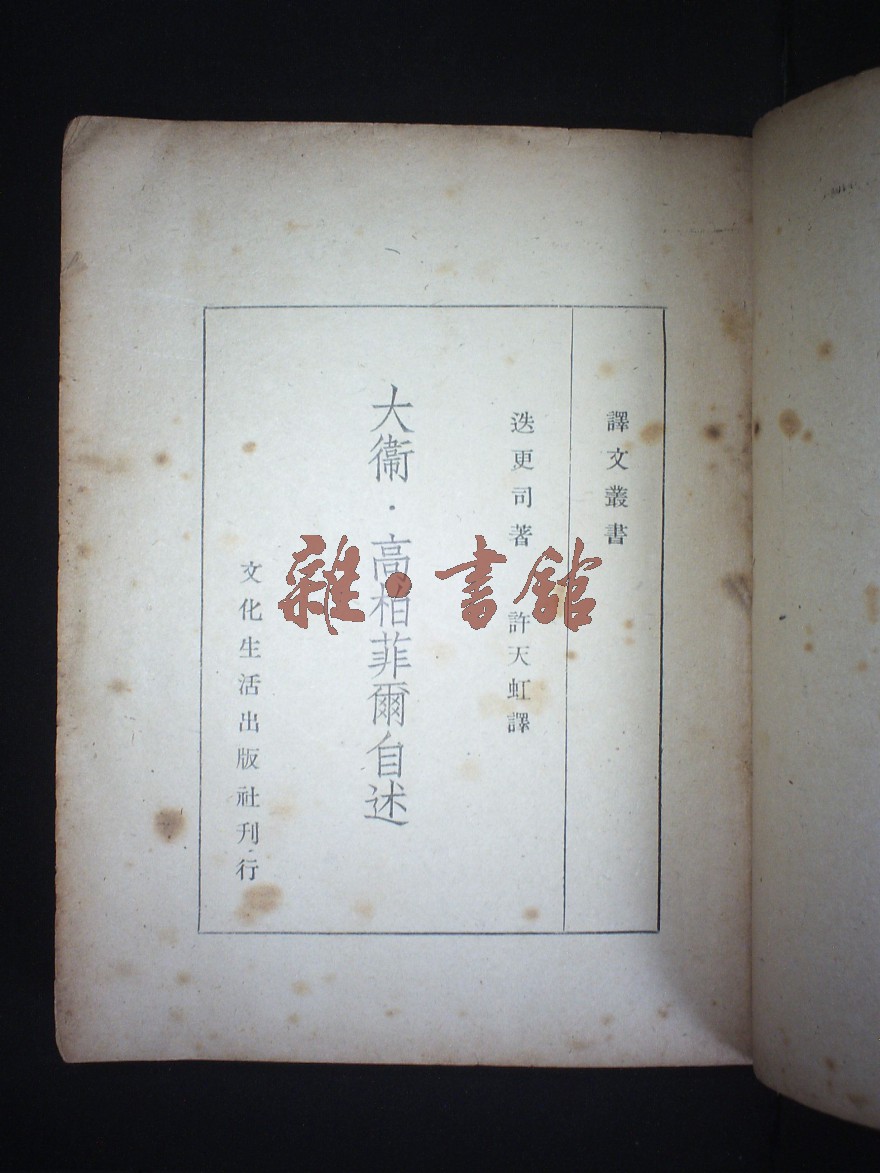 譯文叢書
迭更司著 許天虹譯
大衞·高柏菲爾自述
文化生活出版社刊行
雜·書館